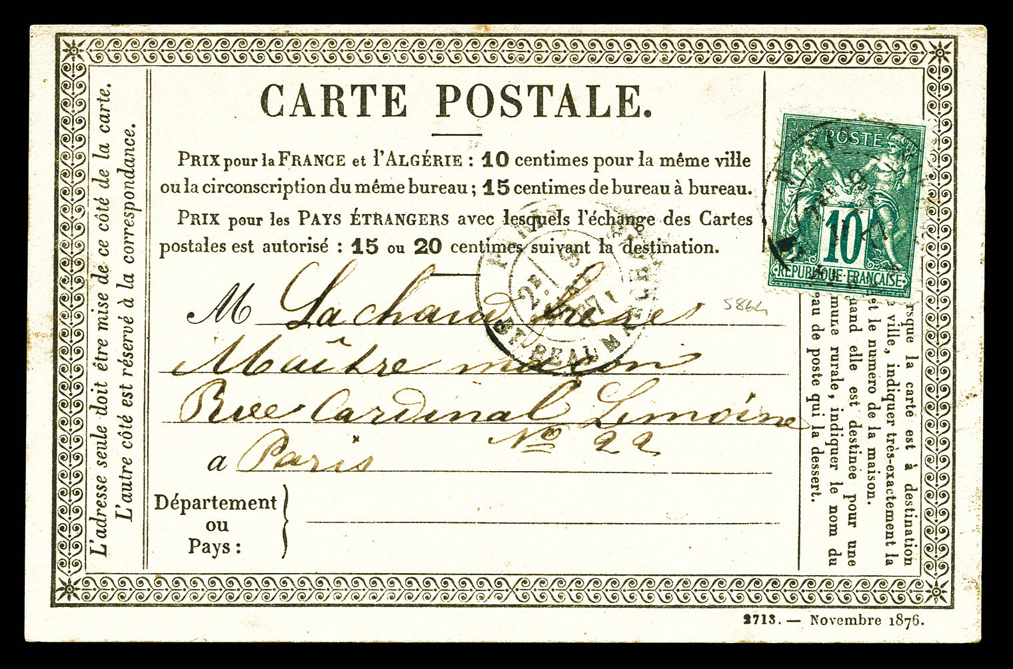 CARTE POSTALE.
PRIX pour la FRANCE et l'ALGÉRIE : 10 centimes pour la même ville
ou la circonscription du même bureau ; 15 centimes de bureau à bureau.
PRIX pour les PAYS ÉTRANGERS avec lesquels l'échange des Cartes
postales est autorisé : 15 ou 20 centimes suivant la destination.
M Lachaud
Maître maçon
Rue Cardinal Lemoine
No 22
a Paris
Département
ou
Pays :
L'adresse seule doit être mise de ce côté de la carte.
L'autre côté est réservé à la correspondance.
POSTE
10
RÉPUBLIQUE FRANÇAISE
PARIS
5864
rsque la carte est à destination
ville, indiquer très-exactement la
et le numéro de la maison.
uand elle est destinée pour une
mune rurale, indiquer le nom du
eau de poste qui la dessert.
2713. — Novembre 1876.